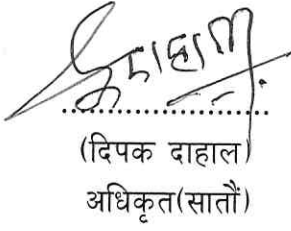 (दिपक दाहाल)
अधिकृत(सातौं)